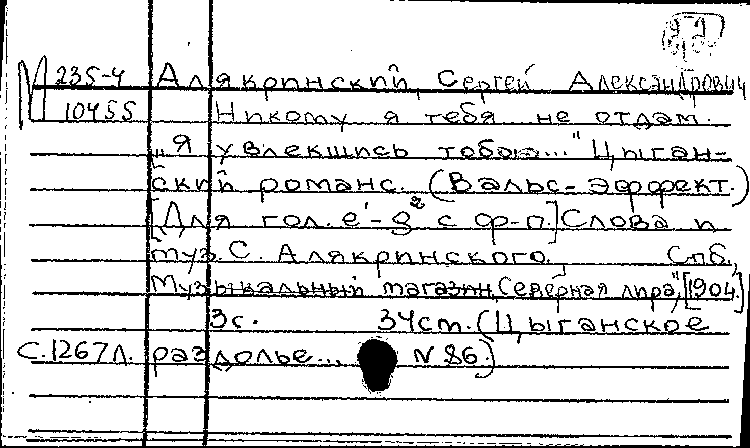 М 235-4 Алякринский, Сергей Александрович
10455 Никому я тебя не отдам.
„Я увлекшись тобою..." Цыган-
ский романс. (Вальс-эффект.)
[Для гол. e'-g² с ф-п.] Слова и
муз. С. Алякринского. Спб,
Музыкальный магазин „Северная лира", [1904.]
3с. 34см. (Цыганское
С.1267л. раздолье... N 86.)